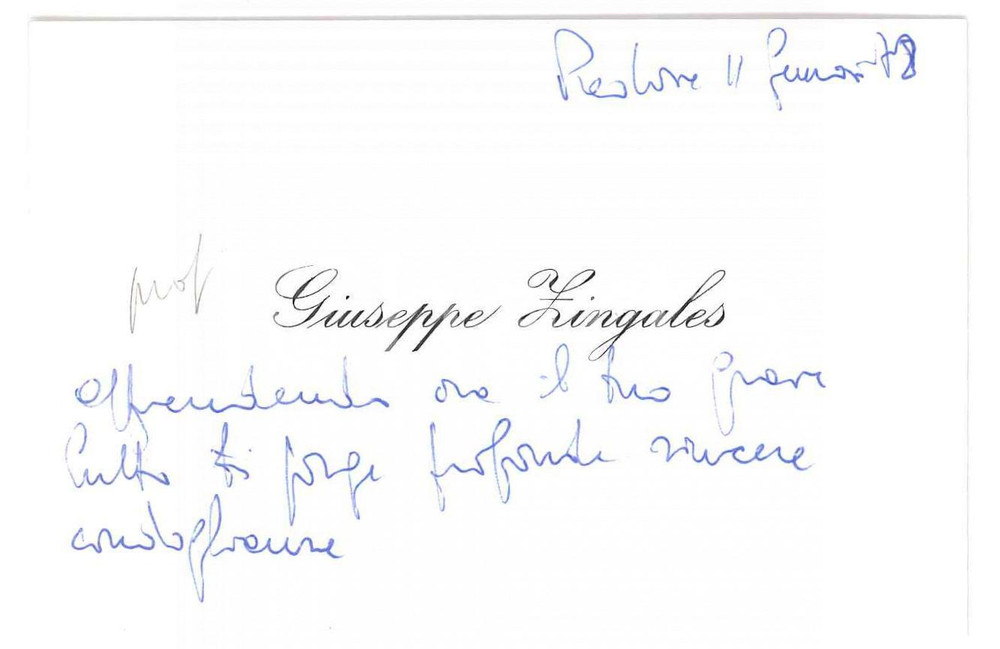 Padova 11 Gennaio 78
prof
Giuseppe Zingales
apprendendo ora il tuo grave
lutto ti porge profonde sincere
condoglianze